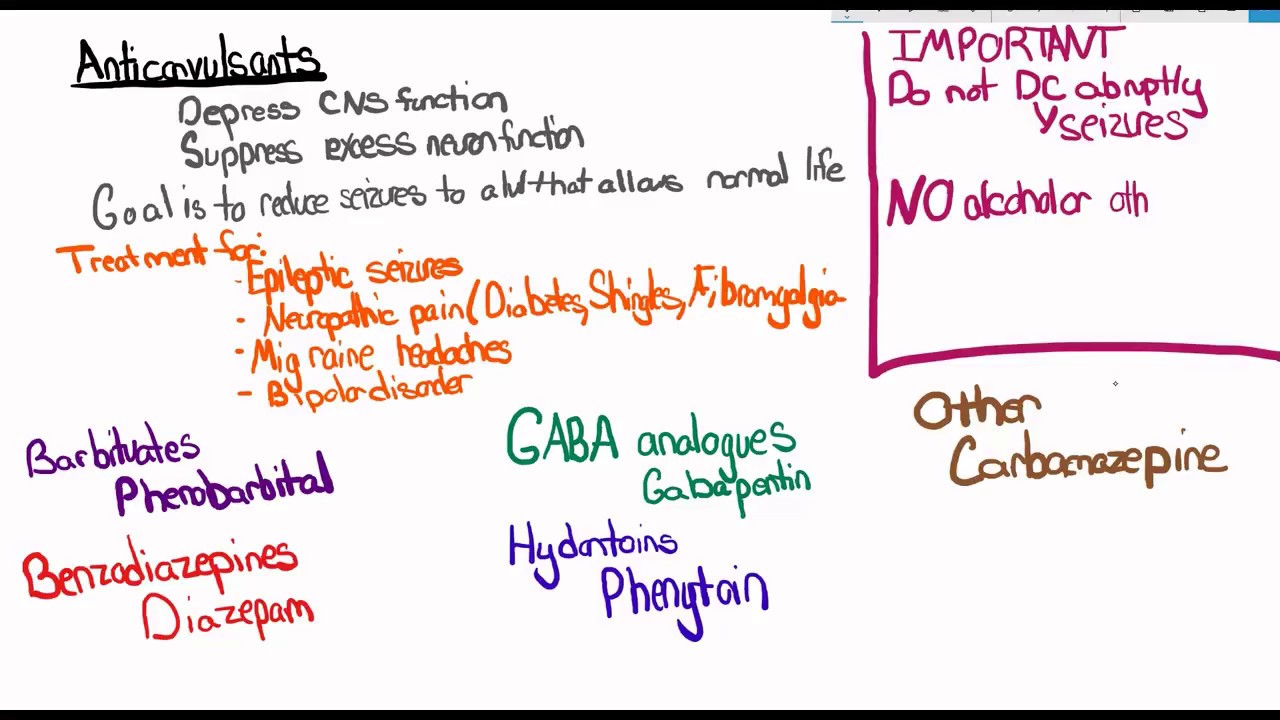 Anticonvulsants
Depress CNS function
Suppress excess neuron function
Goal is to reduce seizures to a lvl that allows normal life
Treatment for:
- Epileptic seizures
- Neuropathic pain (Diabetes, Shingles, Fibromyalgia
- Migraine headaches
- Bipolar disorder
Barbituates
Phenobarbital
Benzodiazepines
Diazepam
GABA analogues
Gabapentin
Hydantoins
Phenytoin
IMPORTANT
Do not DC abruptly
seizures
NO alcohol or oth
Other
Carbamazepine